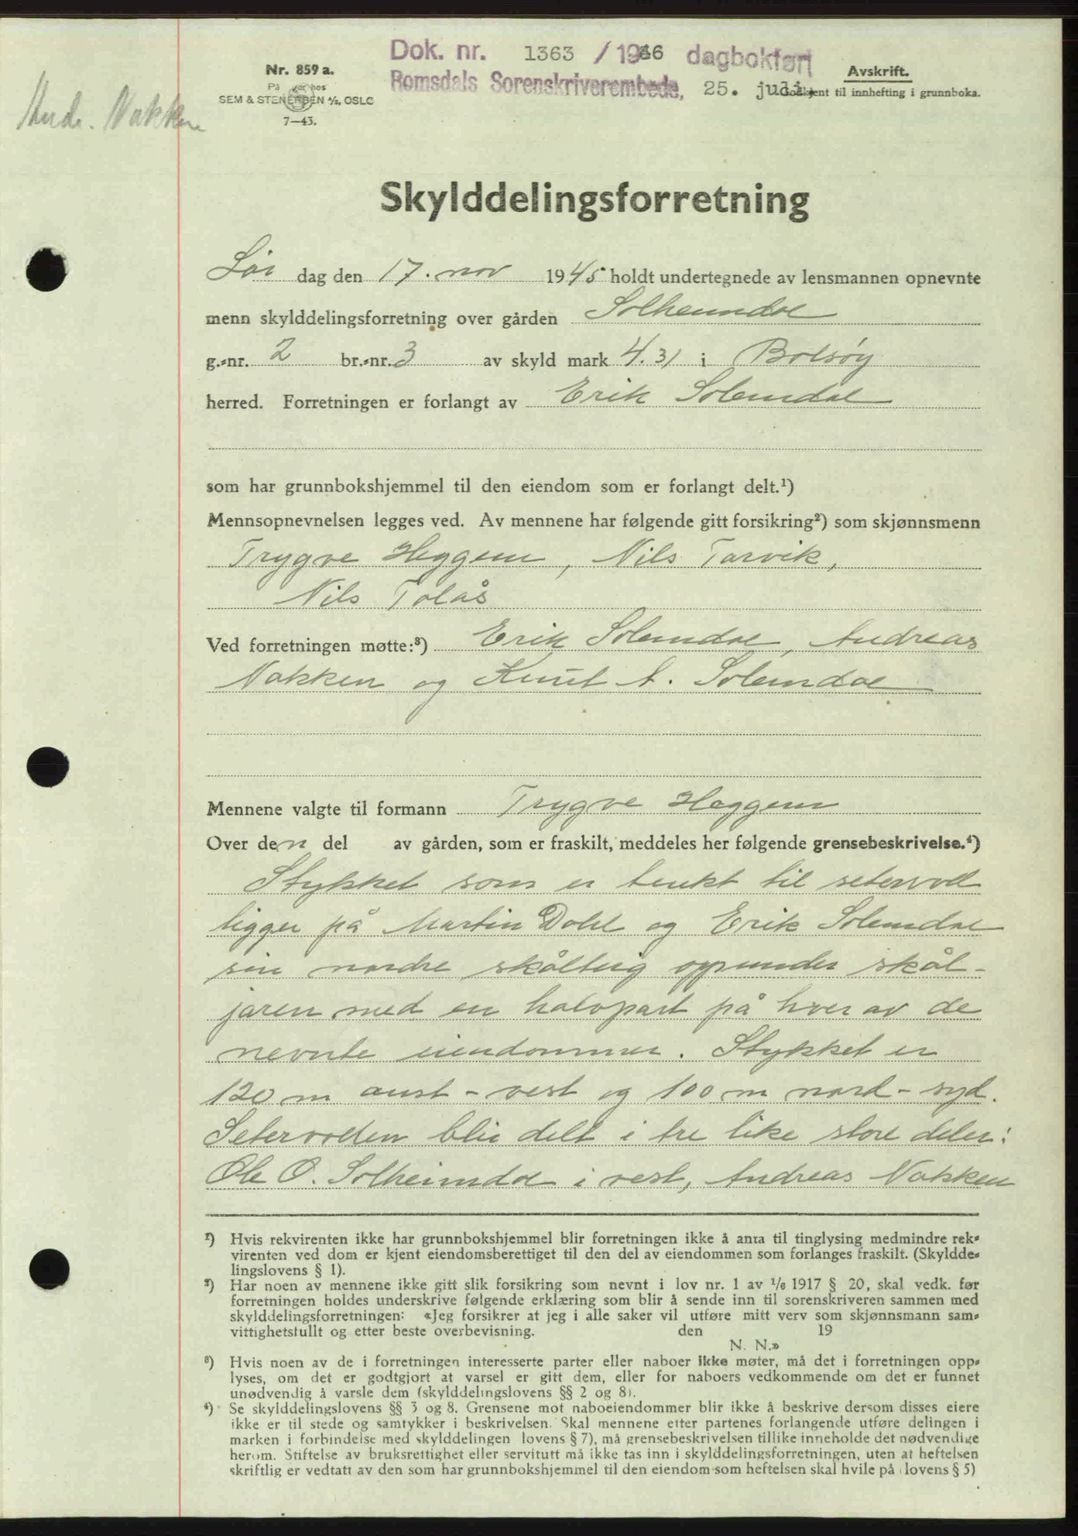 Dok. nr. 1363 / 1946 dagbokført
Romsdals Sorenskriverembede, 25. juli
Nr. 859 a.
SEM & STENERSEN A/S, OSLO
7—43.
Avskrift.
Godkjent til innhefting i grunnboka.
Andr. Nakken
Skylddelingsforretning
Lør dag den 17. nov 1945 holdt undertegnede av lensmannen opnevnte
menn skylddelingsforretning over gården Solheimdal
g.-nr. 2 br.-nr. 3 av skyld mark 4.31 i Bolsøy
herred. Forretningen er forlangt av Erik Solemdal
som har grunnbokshjemmel til den eiendom som er forlangt delt.¹)
Mennsopnevnelsen legges ved. Av mennene har følgende gitt forsikring²) som skjønnsmenn
Trygve Heggem, Nils Tarvik,
Nils Tolås
Ved forretningen møtte:³) Erik Solemdal, Andreas
Nakken og Knut A. Solemdal
Mennene valgte til formann Trygve Heggem
Over den del av gården, som er fraskilt, meddeles her følgende grensebeskrivelse.⁴)
Stykket som er tenkt til setervoll
ligger på Martin Dahl og Erik Solemdal
sin nordre skålteig oppunder skål-
jaren med en halvpart på hver av de
nevnte eiendommer. Stykket er
120 m aust - vest og 100 m nord - syd.
Setervollen blir delt i tre like store deler:
Ole O. Solheimdal i vest, Andreas Nakken
¹) Hvis rekvirenten ikke har grunnbokshjemmel blir forretningen ikke å anta til tinglysing medmindre rek-
virenten ved dom er kjent eiendomsberettiget til den del av eiendommen som forlanges fraskilt. (Skyldde-
lingslovens § 1).
²) Har noen av mennene ikke gitt slik forsikring som nevnt i lov nr. 1 av 1/6 1917 § 20, skal vedk. før
forretningen holdes underskrive følgende erklæring som blir å sende inn til sorenskriveren sammen med
skylddelingsforretningen: «Jeg forsikrer at jeg i alle saker vil utføre mitt verv som skjønnsmann sam-
vittighetsfullt og etter beste overbevisning. den 19
N. N.»
³) Hvis noen av de i forretningen interesserte parter eller naboer ikke møter, må det i forretningen opp-
lyses, om det er godtgjort at varsel er gitt dem, eller for naboers vedkommende om det er funnet
unødvendig å varsle dem (skylddelingslovens §§ 2 og 8).
⁴) Se skylddelingslovens §§ 3 og 8. Grensene mot naboeiendommer blir ikke å beskrive dersom disses eiere
ikke er til stede og samtykker i beskrivelsen. Skal mennene etter partenes forlangende utføre delingen i
marken i forbindelse med skylddelingen lovens § 7), må grensebeskrivelsen tillike inneholde det nødvendige
herom. Stiftelse av bruksrettighet eller servitutt må ikke tas inn i skylddelingsforretningen, uten at heftelsen
skriftlig er vedtatt av den som har grunnbokshjemmel til den eiendom som heftelsen skal hvile på (lovens § 5)